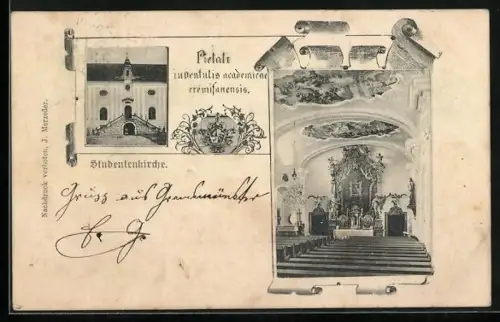 Pietati
iuventutis academicae
cremisanensis.
Studentenkirche.
Nachdruck verboten, J. Merzeder.
Gruss aus Kremsmünster